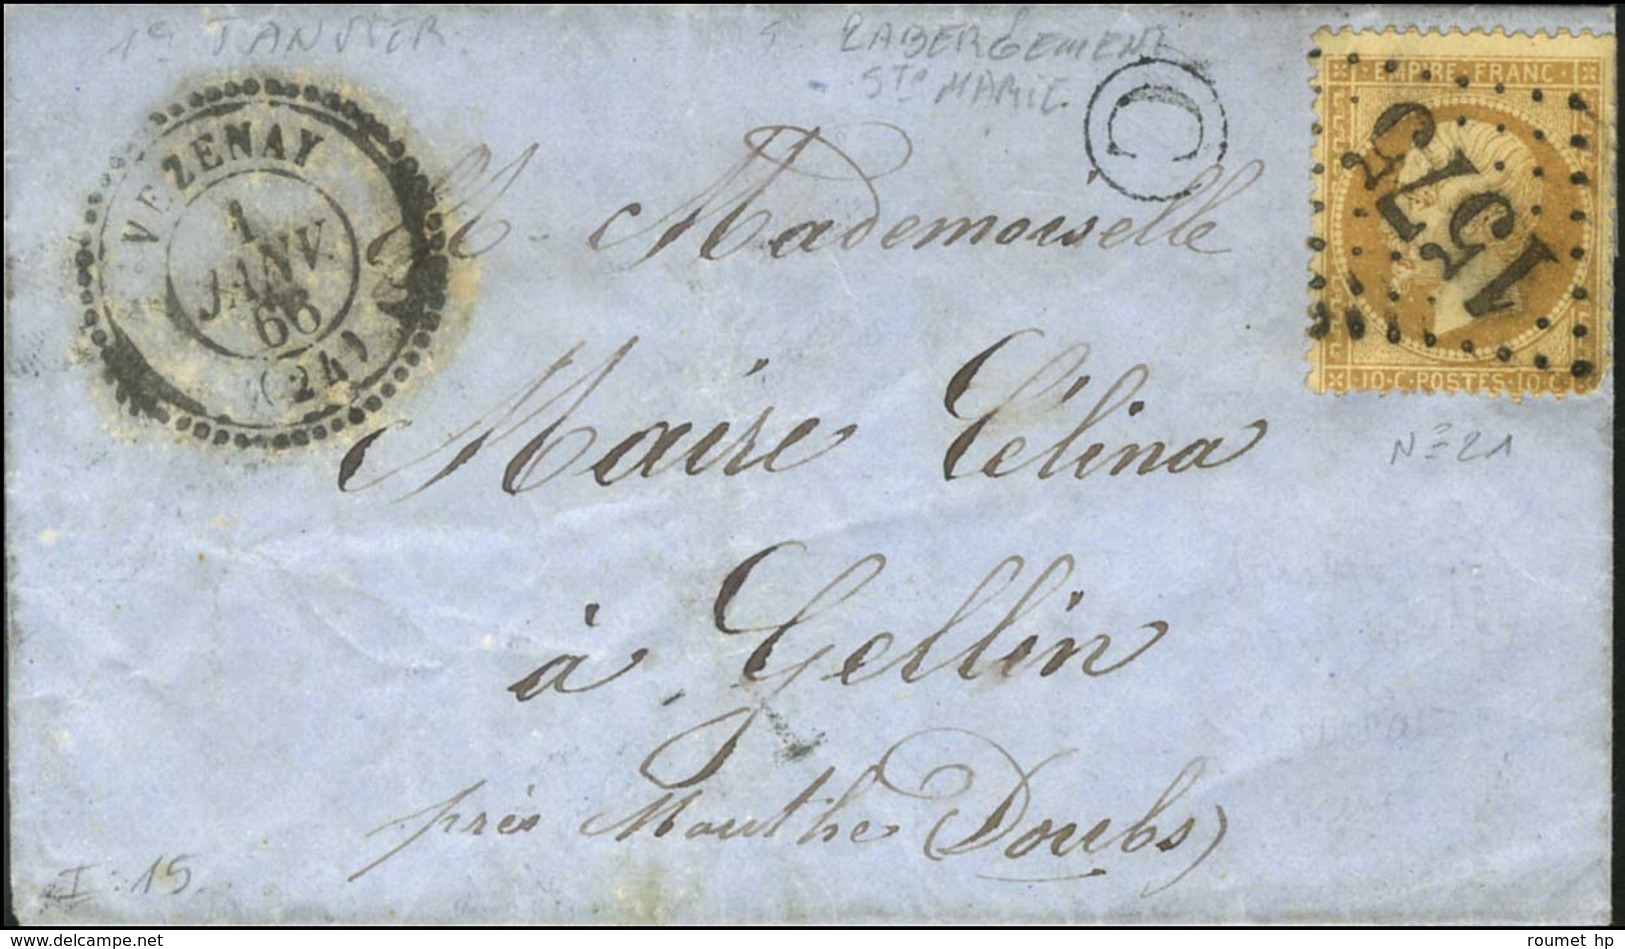 1er JANVIER
LABERGEMENT
STE MARIE
C
VEZENAY
1
JANV.
66
(24)
EMPIRE FRANC
1575
10·C·POSTES·10·C
A Mademoiselle
Maire Célina
N° 21
à Gellin
près Mouthe (Doubs)
I : 15
© roumet hp